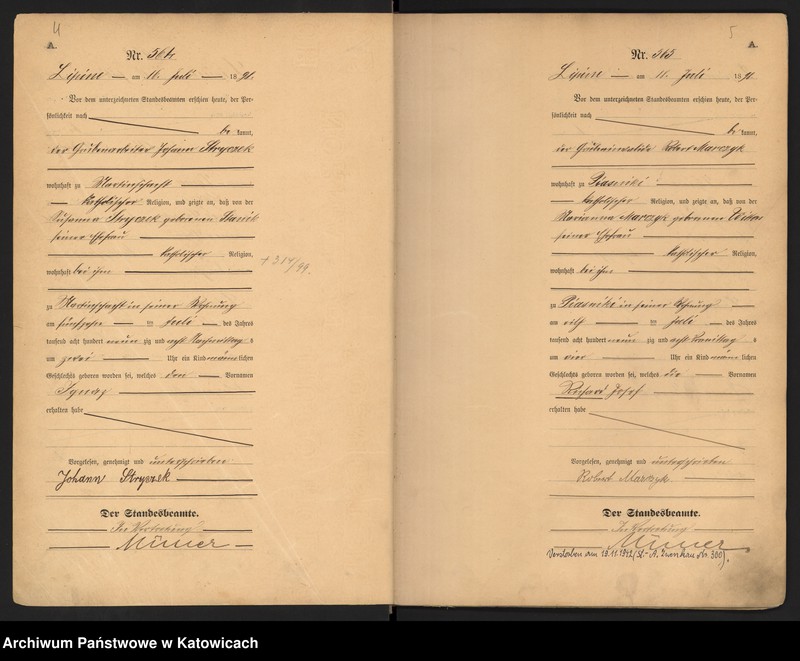 4
A.
Nr.
Lipine am 16. Juli 1898.
Vor dem unterzeichneten Standesbeamten erschien heute, der Per-
sönlichkeit nach
be kannt,
der Grubenarbeiter Johann Stryczek
wohnhaft zu Martinschacht
katholischer Religion, und zeigte an, daß von der
Susanna Stryczek geborenen
seiner Ehefrau
katholischer Religion,
wohnhaft bei ihm
zu Martinschacht in seiner Wohnung
am ten Juli des Jahres
tausend acht hundert neun zig und acht Nachmittag s
um zwei Uhr ein Kind männ lichen
Geschlechts geboren worden sei, welches den Vornamen
Ignaz
erhalten habe
Vorgelesen, genehmigt und unterschrieben
Johann Stryczek
Der Standesbeamte.
In Vertretung
+ 314/99.
5
A.
Nr. 565
Lipine am 11. Juli 1898
Vor dem unterzeichneten Standesbeamten erschien heute, der Per-
sönlichkeit nach
be kannt,
der Grubeninvalide Robert Marczyk
wohnhaft zu Piasniki
katholischer Religion, und zeigte an, daß von der
Marianna Marczyk geborenen
seiner Ehefrau
katholischer Religion,
wohnhaft bei ihm
zu Piasniki in seiner Wohnung
am elf ten Juli des Jahres
tausend acht hundert neun zig und acht Vormittag s
um vier Uhr ein Kind männ lichen
Geschlechts geboren worden sei, welches die Vornamen
Richard Josef
erhalten habe
Vorgelesen, genehmigt und unterschrieben
Robert Marczyk
Der Standesbeamte.
In Vertretung
Verstorben am 19.11.1942 (St.-A. Nr. 300).
Archiwum Państwowe w Katowicach